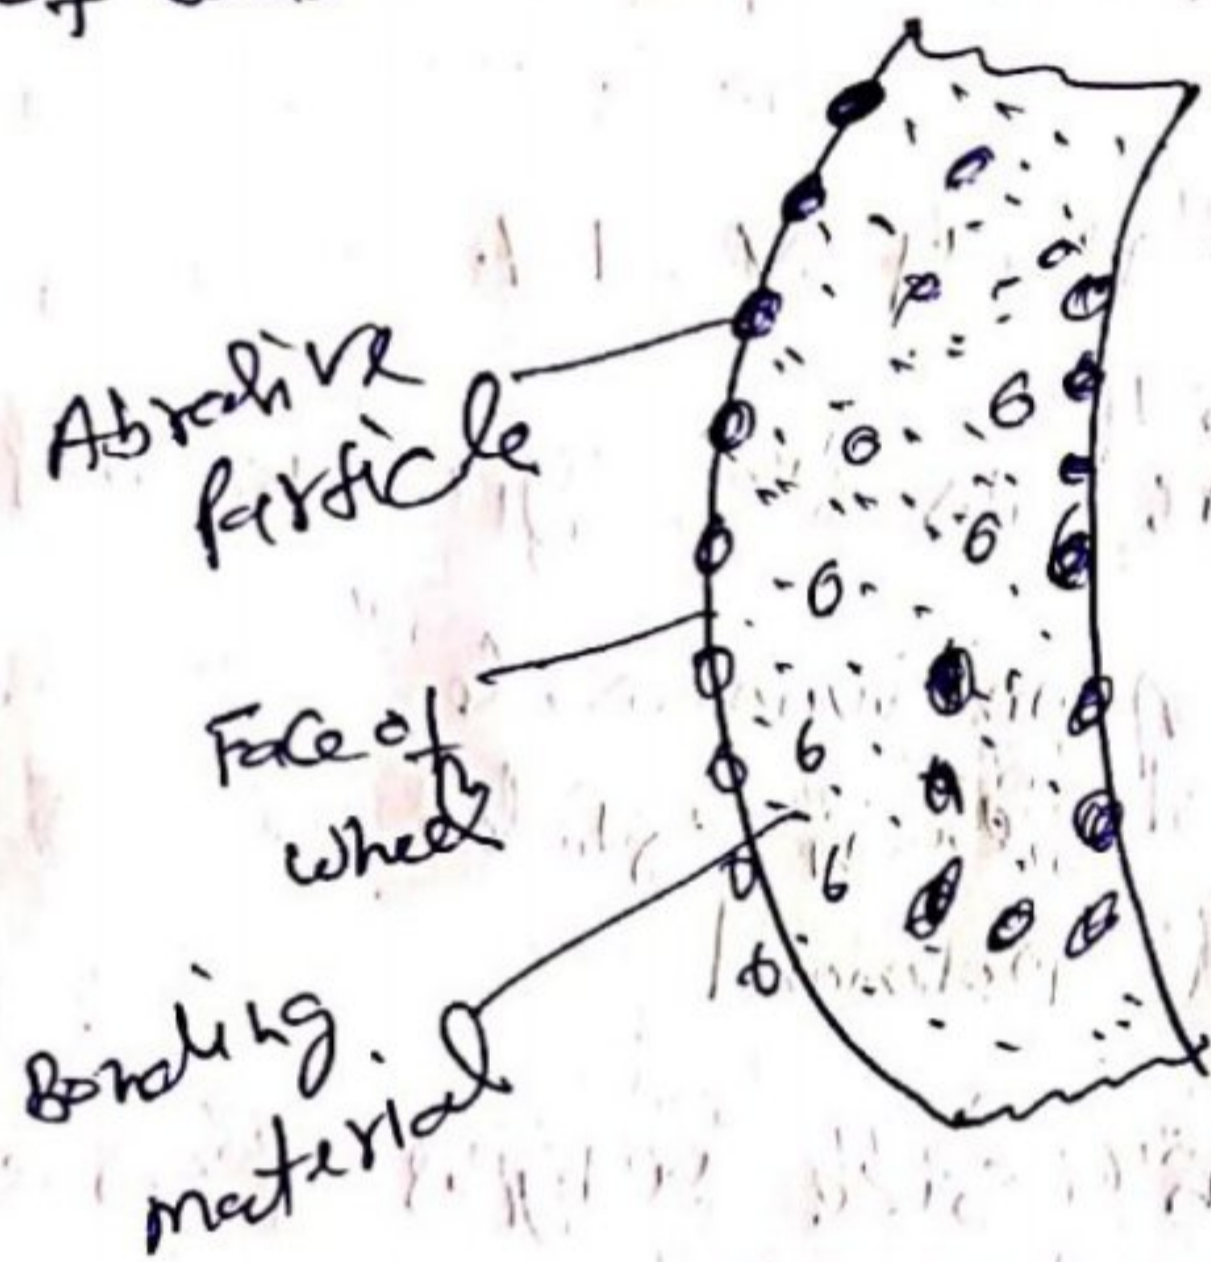 Abrasive
particle
Face of
wheel
Bonding
material